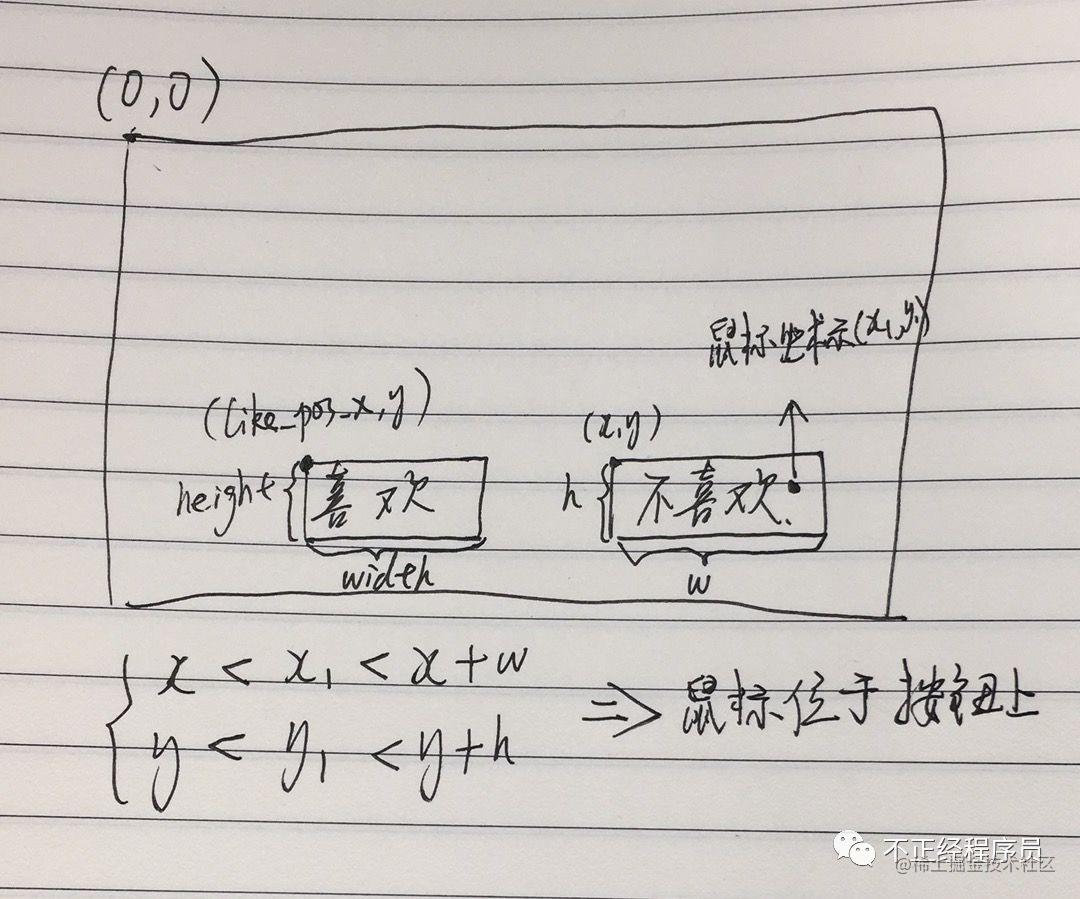 (0,0)
鼠标坐标(x₁,y₁)
(like_pos_x,y)
(x,y)
height
喜欢
h
不喜欢
width
w
x < x₁ < x+w
y < y₁ < y+h
=> 鼠标位于按钮上
不正经程序员
@稀土掘金技术社区